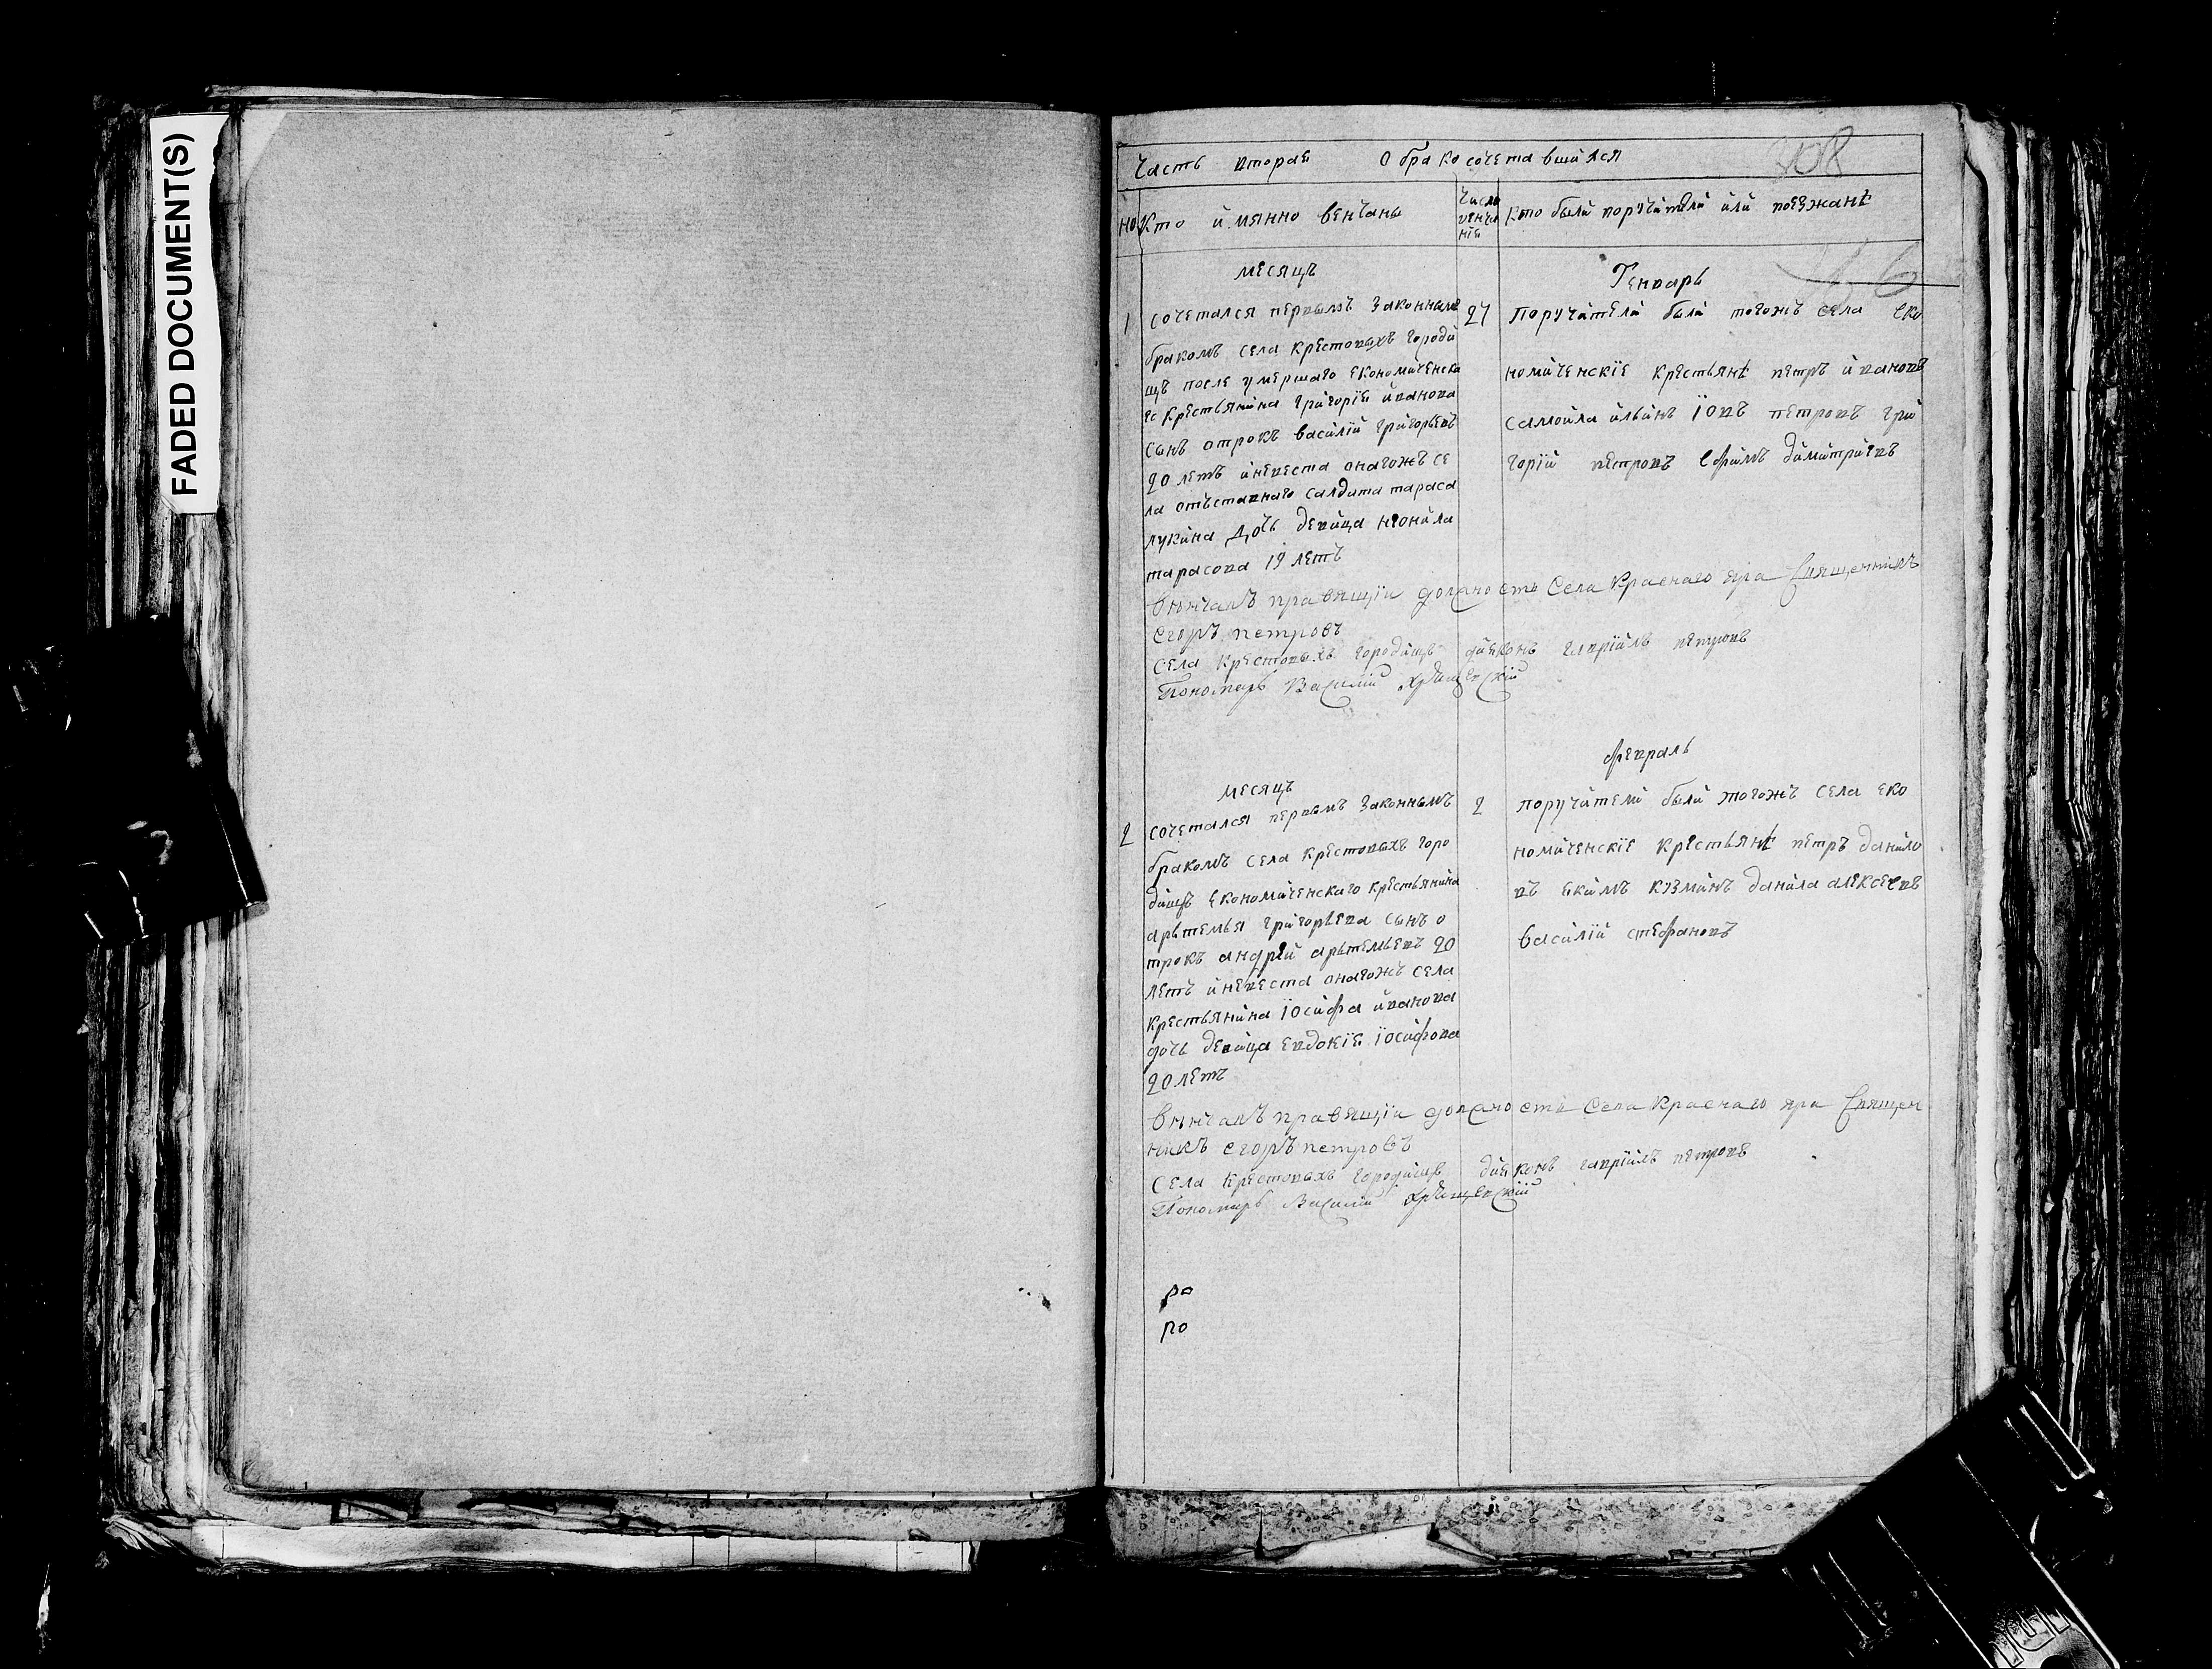 FADED DOCUMENT(S)
Часть вторая О бракосочетавшихся 308
НО Кто имянно венчаны
Число венчанїя
Кто были поручители или поезжанѣ
месяцъ Генварь
1 сочетался первымъ законнымъ
бракомъ села крестовыхъ городи
щъ после умершаго економическа
го крестьянина григорїя иванова
сынъ отрокъ василїй григорьевъ
20 летъ иневеста онагожъ се
ла отъставнаго салдата тараса
лукина дочь девица неонила
тарасова 19 летъ
27
поручители были тогожъ села еко
номическїе крестьянѣ петръ ивановъ
самойла ильинъ їовъ петровъ гри
горїй петровъ ефимъ димитрїевъ
Внчалъ правящїи должность Села Краснаго яра Священникъ
егоръ петровъ
села крестовыхъ городищъ дїяконъ гаврїилъ петровъ
Пономарь Василий
месяцъ февраль
2 сочетался первымъ законнымъ
бракомъ села крестовыхъ горо
дищъ економическаго крестьянина
арьтемья григорьева сынъ о
трокъ андрей арьтемьевъ 20
летъ иневеста онагожъ села
крестьянина їосифа иванова
дочь девица евдокїя їосифова
20 летъ
2
поручители были тогожъ села еко
номическїе крестьянѣ петръ данило
въ екимъ кузминъ данила алексеевъ
василїй стефановъ
Внчалъ правящїи должность Села Краснаго яра Священ
никъ егоръ петровъ
села крестовыхъ городищъ дїяконъ гаврїилъ петровъ
Пономарь Василий
ро
ро